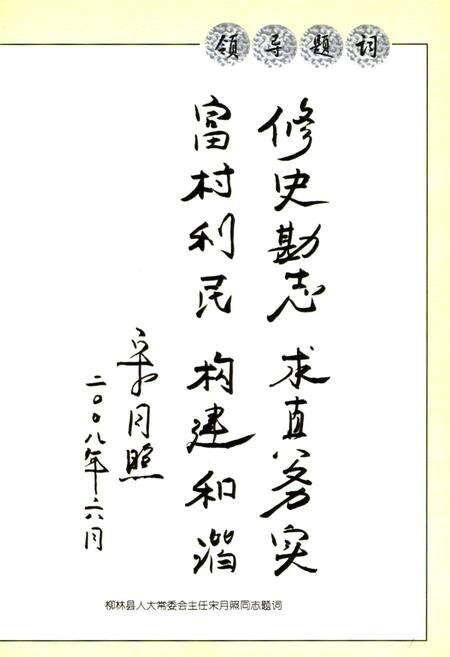 领导题词
修史勘志 求真务实
富村利民 构建和谐
宋月照
二〇〇八年六月
柳林县人大常委会主任宋月照同志题词